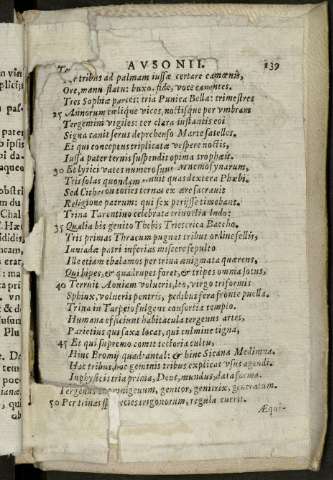 AVSONII. 139
tribus ad palmam iussæ certare camœnis,
Ore, manu flatu: buxo, fide, voce canentes.
Tres Sophiæ partes: tria Punica Bella: trimestres
25 Annorum cælique vices, noctisque per vmbram
Tergemini vigiles: ter clara instantis eoi
Signa canit serus deprehenso Marte satelles.
Et qui conceptus triplicatæ vespere noctis,
Iussa pater ternis suspendit opima trophæis.
30 Et lyrici vates numerosunt Mnemosynarum,
Tris solas quondam tenuit quas dextera Phœbi.
Sed Citheron toties ternas ex ære sacrauit
Religione patrum: qui sex periisse timebant.
Trina Tarentino celebrata trinoctia ludo:
35 Qualia bis genito Thebis Trieterica Baccho.
Tris primas Thracum pugnas tribus ordine sellis,
Iuniadæ patri inferias misere sepulto
Ille etiam thalamos per trina ænigmata quærens,
Qui bipes, et quadrupes foret, et tripes omnia solus.
40 Terruit Aoniam volucris, leo, virgo triformis
Sphinx, volucris pennis, pedibus fera fronte puella.
Trina in Tarpeio fulgent consortia templo.
Humana efficiunt habitacula tergenus artes.
Parietibus qui saxa locat, qui culmine tigna,
45 Et qui supremo comit tectoria cultu,
Hinc Bromij quadrantal: & hinc Sicana Medimna.
Hac tribus, hæc geminis tribus explicat vsus agendi.
In physicis tria prima, Deus, mundus, data forma.
Tergenus omnigenum, genitor, genitrix, generatum.
50 Per trinas species trigonorum, regula currit.
Æqui-